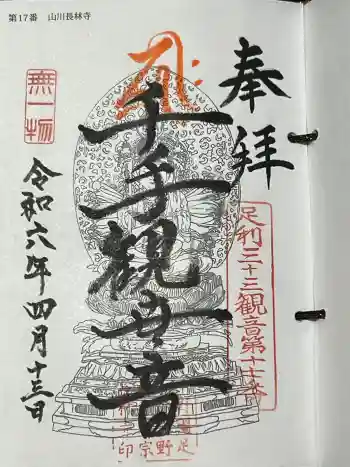 第17番 山川長林寺
奉拝
足利三十三観音第十七番
千手観世音
無一物
令和六年四月十三日